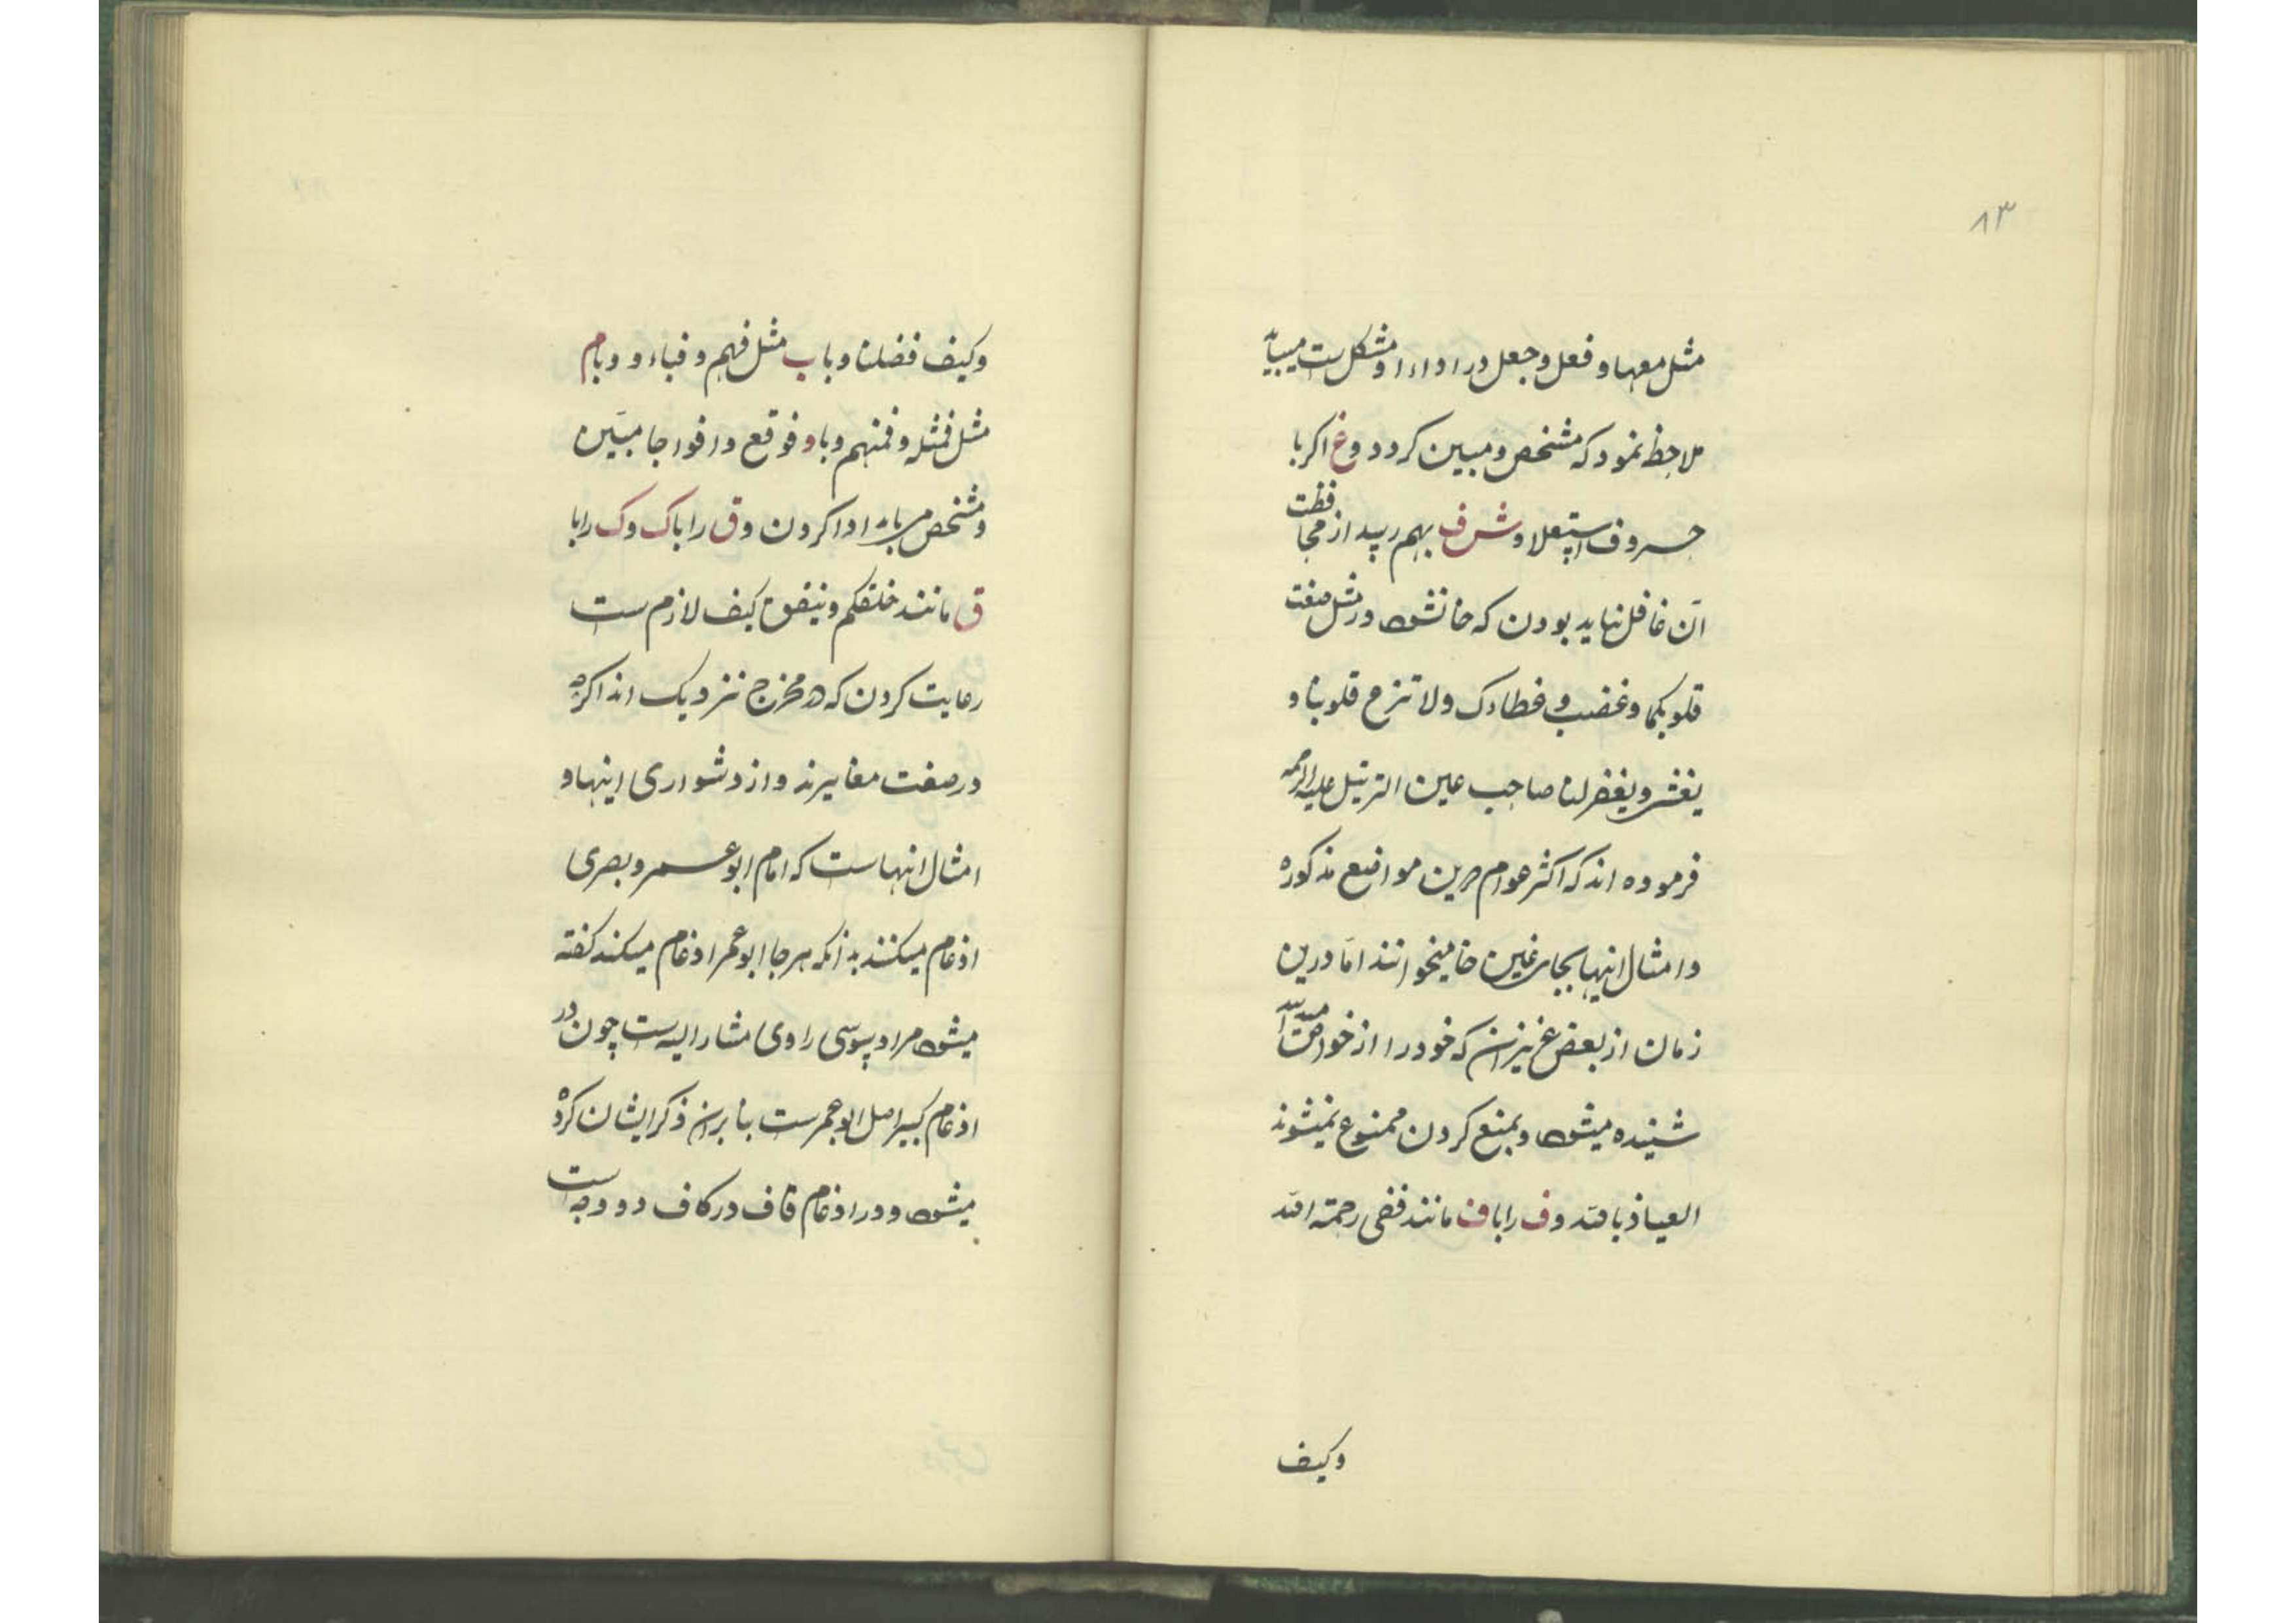 ۸۳
مثل معها و فعل و جعل در اداء او مشکل ست میباید
ملاحظ نمود که مشخص و مبین کردد و غ اکر با
حروف استعلا و ش ف بهم رسد از محافظت
آن غافل نباید بودن که خا نشود در مثل صغت
قلوبکما و غضب و غطاءک ولا تزغ قلوبنا و
یغشی و یغفر لنا صاحب عین الترتیل علیه الرحمه
فرموده اند که اکثر عوام درین مواضع مذکوره
و امثال اینها بجای غین خا میخوانند اما درین
زمان از بعض عزیزان که خود را از خواص
شنیده میشود و بمنع کردن ممنوع نمیشوند
العیاذ بالله و ف را با ف مانند ففی رحمة الله
وکیف
وکیف فضلنا و با ب مثل فهم و فباءو و با م
مثل فمثله و فمنهم و با و فوقع و افواجا مبین
و مشخص میباید ادا کردن و ق را با ک و ک را با
ق مانند خلقکم و ینفق کیف لازم ست
رعایت کردن که در مخرج نزدیک اند اکرچه
در صفت مغایرند و از دشواری اینها و
امثال اینهاست که امام ابو عمرو بصری
ادغام میکنند بدانکه هرجا ابو عمر ادغام میکند کفته
میشود مراد سوسی راوی مشار الیه ست چون در
ادغام کبیر اصل ابو عمرست بنابرین ذکر ایشان کرده
میشود و در ادغام قاف در کاف دو وجه است